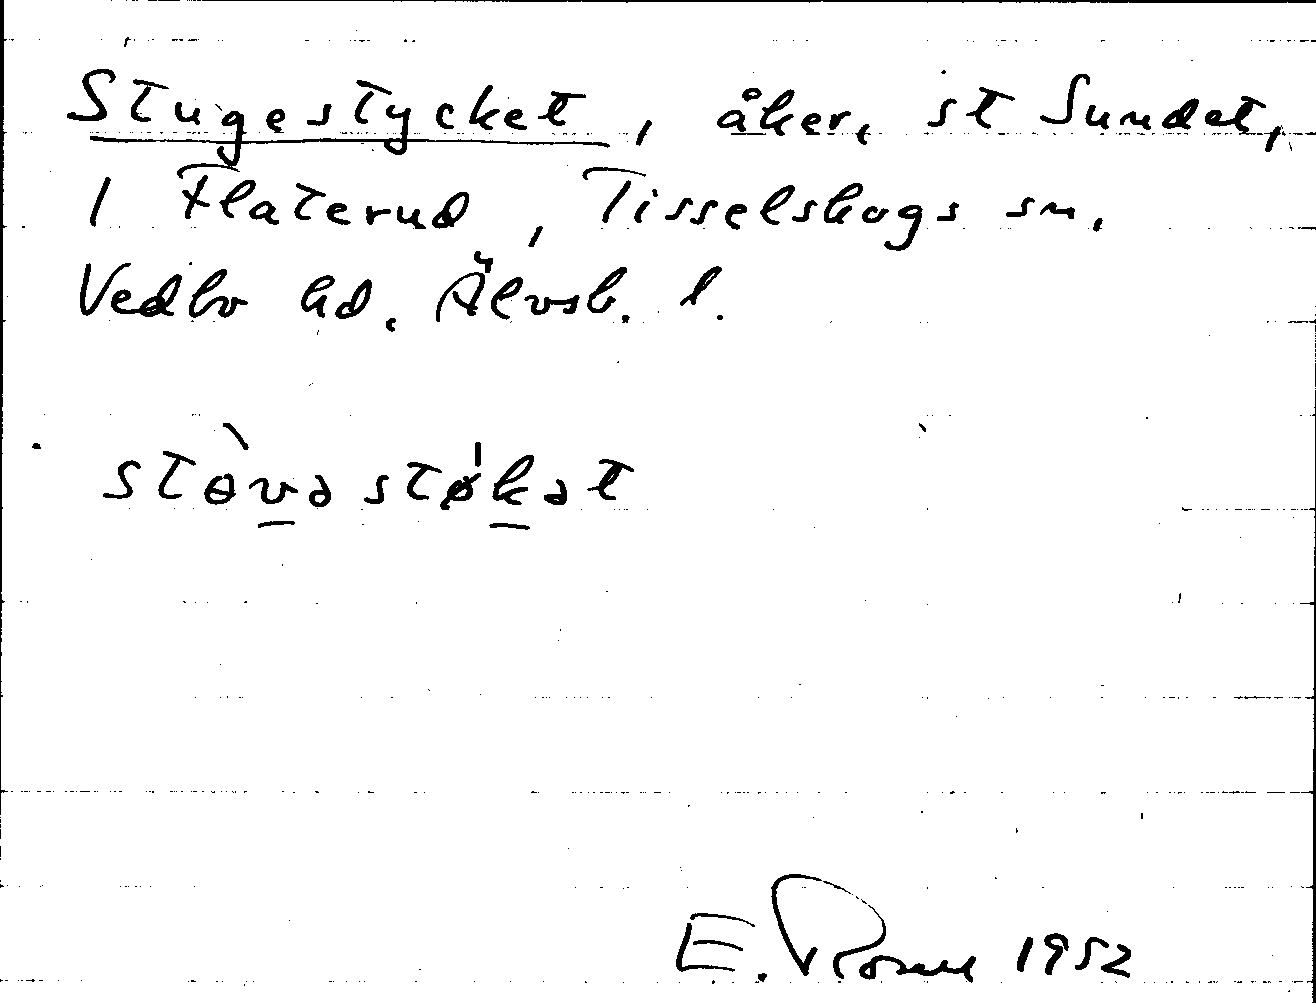 Stugestycket, åker, st Sundet,
1 Flaterud, Tisselskogs sn.
Vedbo hd. Älvsb. l.
stɵ̀və stø̍kət
E. Rosell 1952